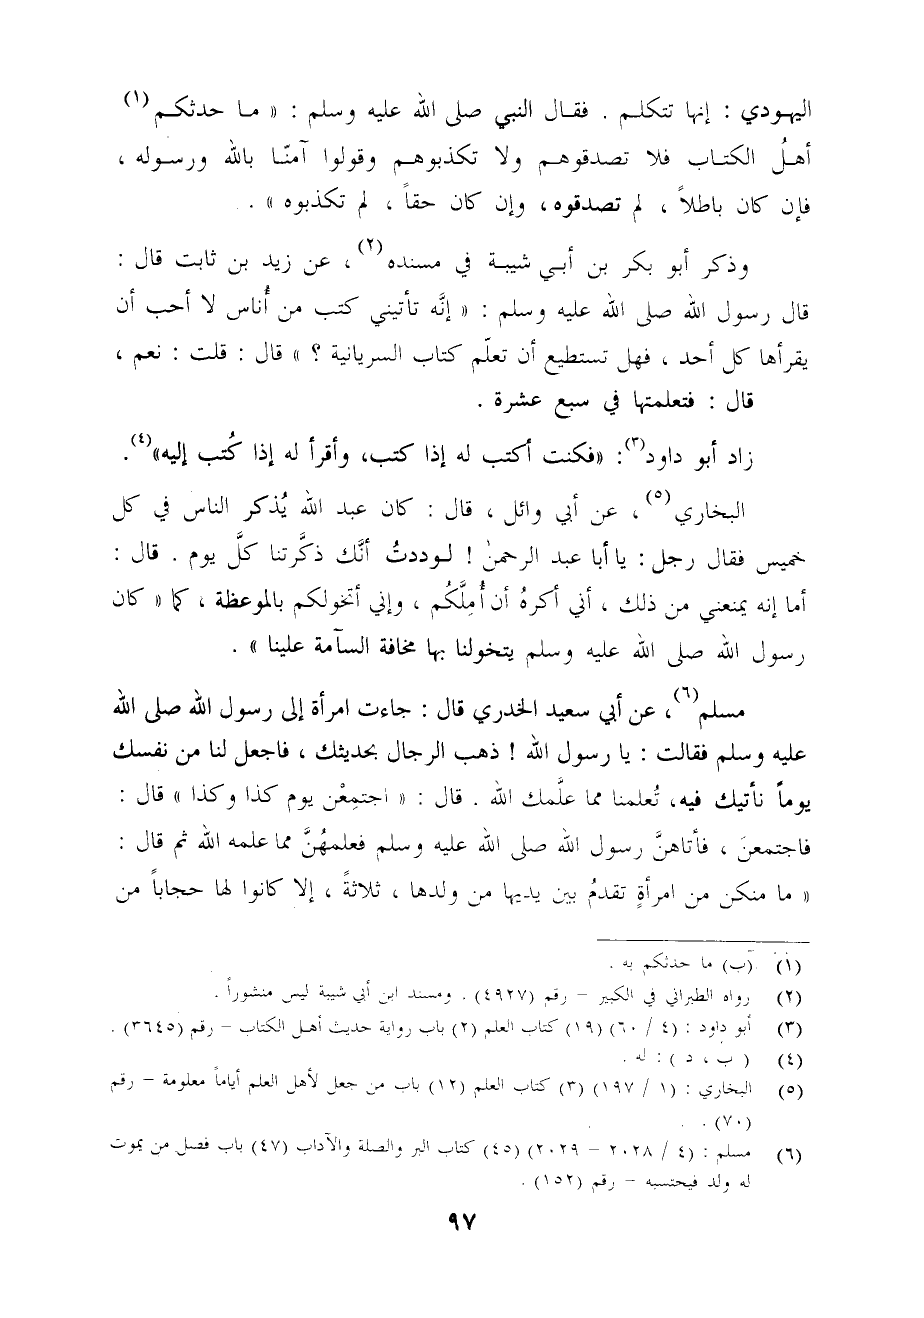 اليهودي : إنها تتكلم . فقال النبي صلى الله عليه وسلم : « ما حدثكم(١)
أهلُ الكتاب فلا تصدقوهم ولا تكذبوهم وقولوا آمنّا بالله ورسوله ،
فإن كان باطلاً ، لم تصدقوه ، وإن كان حقاً ، لم تكذبوه » .
وذكر أبو بكر بن أبي شيبة في مسنده(٢) ، عن زيد بن ثابت قال :
قال رسول الله صلى الله عليه وسلم : « إنَّه تأتيني كتب من أُناس لا أحب أن
يقرأها كل أحد ، فهل تستطيع أن تعلّم كتاب السريانية ؟ » قال : قلت : نعم ،
قال : فتعلمتها في سبع عشرة .
زاد أبو داود(٣): «فكنت أكتب له إذا كتب، وأقرأ له إذا كُتب إليه»(٤).
البخاري(٥) ، عن أبي وائل ، قال : كان عبد الله يُذكر الناس في كل
خميس فقال رجل : يا أبا عبد الرحمنٰ ! لوددتُ أنَّك ذكَّرتنا كلَّ يوم . قال :
أما إنه يمنعني من ذلك ، أني أكرهُ أن أُمِلَّكُم ، وإني أتخولكم بالموعظة ، كما « كان
رسول الله صلى الله عليه وسلم يتخولنا بها مخافة السآمة علينا » .
مسلم(٦) ، عن أبي سعيد الخدري قال : جاءت امرأة إلى رسول الله صلى الله
عليه وسلم فقالت : يا رسول الله ! ذهب الرجال بحديثك ، فاجعل لنا من نفسك
يوماً نأتيك فيه، تُعلمنا مما علَّمك الله . قال : « اجتمِعْن يوم كذا وكذا » قال :
فاجتمعنَ ، فأتاهنَّ رسول الله صلى الله عليه وسلم فعلمهُنَّ مما علمه الله ثم قال :
« ما منكن من امرأةٍ تقدمُ بين يديها من ولدها ، ثلاثةً ، إلا كانوا لها حجاباً من
(١) (ب) ما حدثكم به .
(٢) رواه الطبراني في الكبير – رقم (٤٩٢٧) . ومسند ابن أبي شيبة ليس منشوراً .
(٣) أبو داود : (٤ / ٦٠) (١٩) كتاب العلم (٢) باب رواية حديث أهل الكتاب – رقم (٣٦٤٥) .
(٤) ( ب ، د ) : له .
(٥) البخاري : (١ / ١٩٧) (٣) كتاب العلم (١٢) باب من جعل لأهل العلم أياماً معلومة – رقم
(٧٠) .
(٦) مسلم : (٤ / ٢٠٢٨ – ٢٠٢٩) (٤٥) كتاب البر والصلة والآداب (٤٧) باب فصل من يموت
له ولد فيحتسبه – رقم (١٥٢) .
٩٧